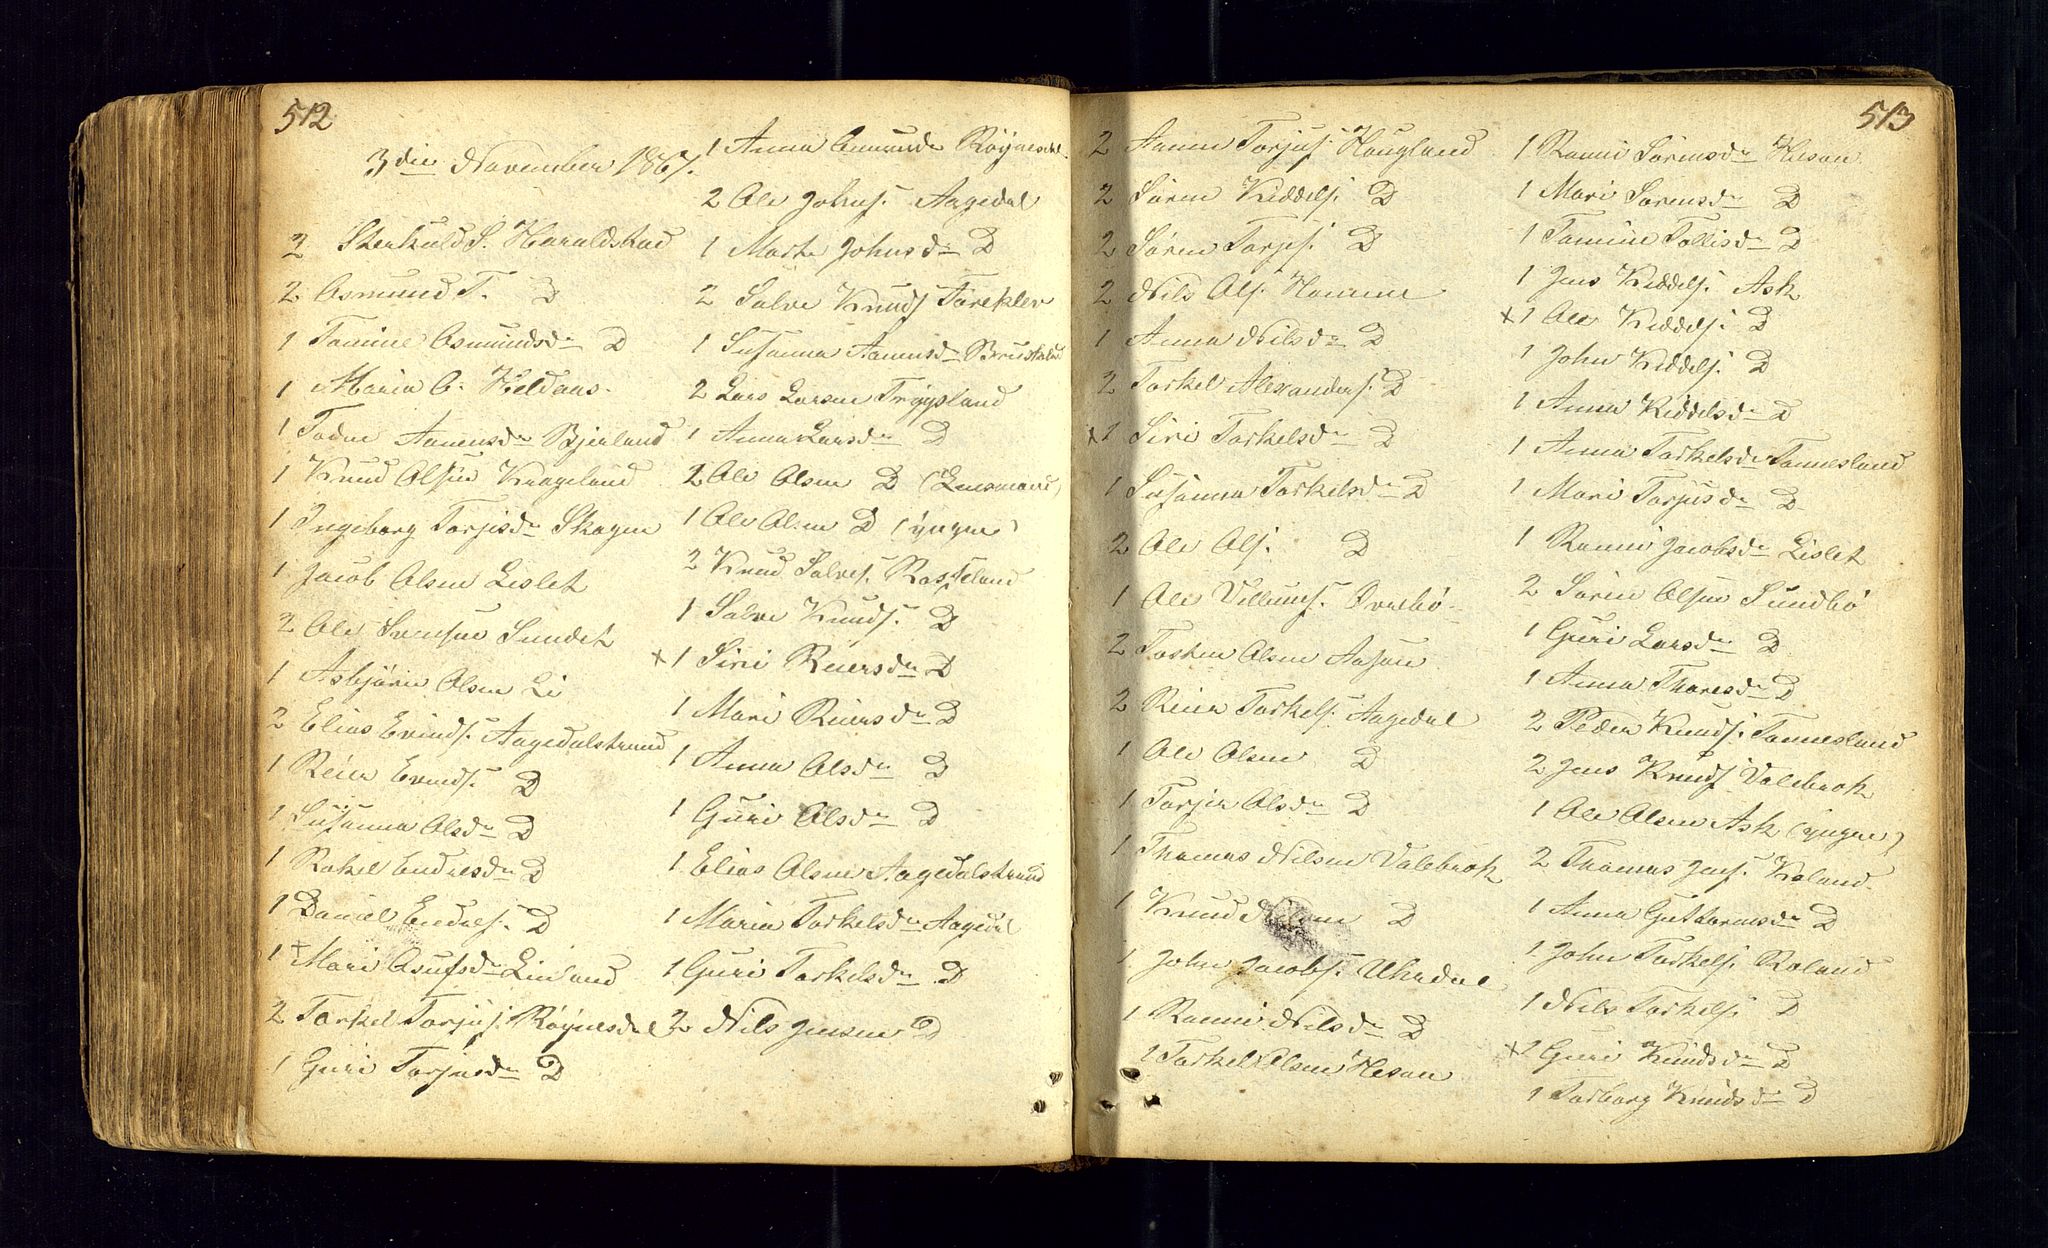 512
3die November 1867.
2 Sterkuld S. Haraldstad
2 Asmund T. D
1 Tomine Asmundsdr D
1 Maria O. Heldaas.
1 Todne Aanensdr Bjerland
1 Knud Olsen Krageland
1 Ingeborg Torjisdr Skagen
1 Jacob Olsen Lislet
2 Ole Svensen Sundet
1 Asbjörn Olsen Li
2 Elias Evinds. Aagedalstrand
1 Reier Evinds. D
1 Susanna Olsdr D
1 Rakel Endresdr D
1 Daniel Endres. D
1 + Mari Asulfsdr Linland
2 Torkel Torjus. Röynesdal
1 Guri Torjusdr D
1 Anna Omundsdr Röynesdal
2 Ole Johns. Aagedal
1 Marte Johnsdr D
2 Salve Knuds. Toreklev
1 Susanna Aanensdr Bruskeland
2 Lars Larsen Trygsland
1 Anna Larsdr D
2 Ole Olsen D (Lensmand)
1 Ole Olsen D (yngre)
2 Knud Salves. Rosseland
1 Salve Knuds. D
+1 Siri Reiersdr D
1 Mari Reiersdr D
1 Anna Olsdr D
1 Guri Olsdr D
1 Elias Olsen Aagedalstrand
1 Maria Torkelsdr Aagedal
1 Guri Torkelsdr D
2 Nils Jensen D
513
2 Aanen Torjus. Haugland
2 Sören Keddels. D
2 Sören Torjes. D
2 Nils Ols. Homme
1 Anna Nilsdr D
2 Torkel Alexanders. D
+1 Siri Torkelsdr D
1 Susanna Torkelsdr D
2 Ole Ols. D
1 Ole Villums. Övrebö
2 Torkel Olsen Aasen
2 Reier Torkels. Aagedal
1 Ole Olsen D
1 Torjer Olsdr D
1 Thomas Nilsen Valebrok
1 Knud Nilsen D
1 John Jacobs. Uhrdal
1 Ronni Nilsdr D
1 Torkel Olsen Hesaen
1 Ronni Sörensdr Hesaen
1 Mari Sörensdr D
1 Tomine Tollisdr D
1 Jens Keddels. Ask
+1 Ole Keddels. D
1 John Keddels. D
1 Anna Keddelsdr D
1 Anna Torkelsdr Tonnesland
1 Mari Torjusdr D
1 Ronni Jacobsdr Lislet
2 Sören Olsen Sundbö
1 Guri Larsdr D
1 Anna Thoresdr D
2 Peder Knuds. Tonnesland
2 Jens Knuds. Valebrok
1 Ole Olsen Ask (yngre)
2 Thomas Jens. Roland
1 Anna Guttormsdr D
1 John Torkels. Roland
1 Nils Torkels. D
+1 Guri Knudsdr D
1 Torborg Knudsdr D